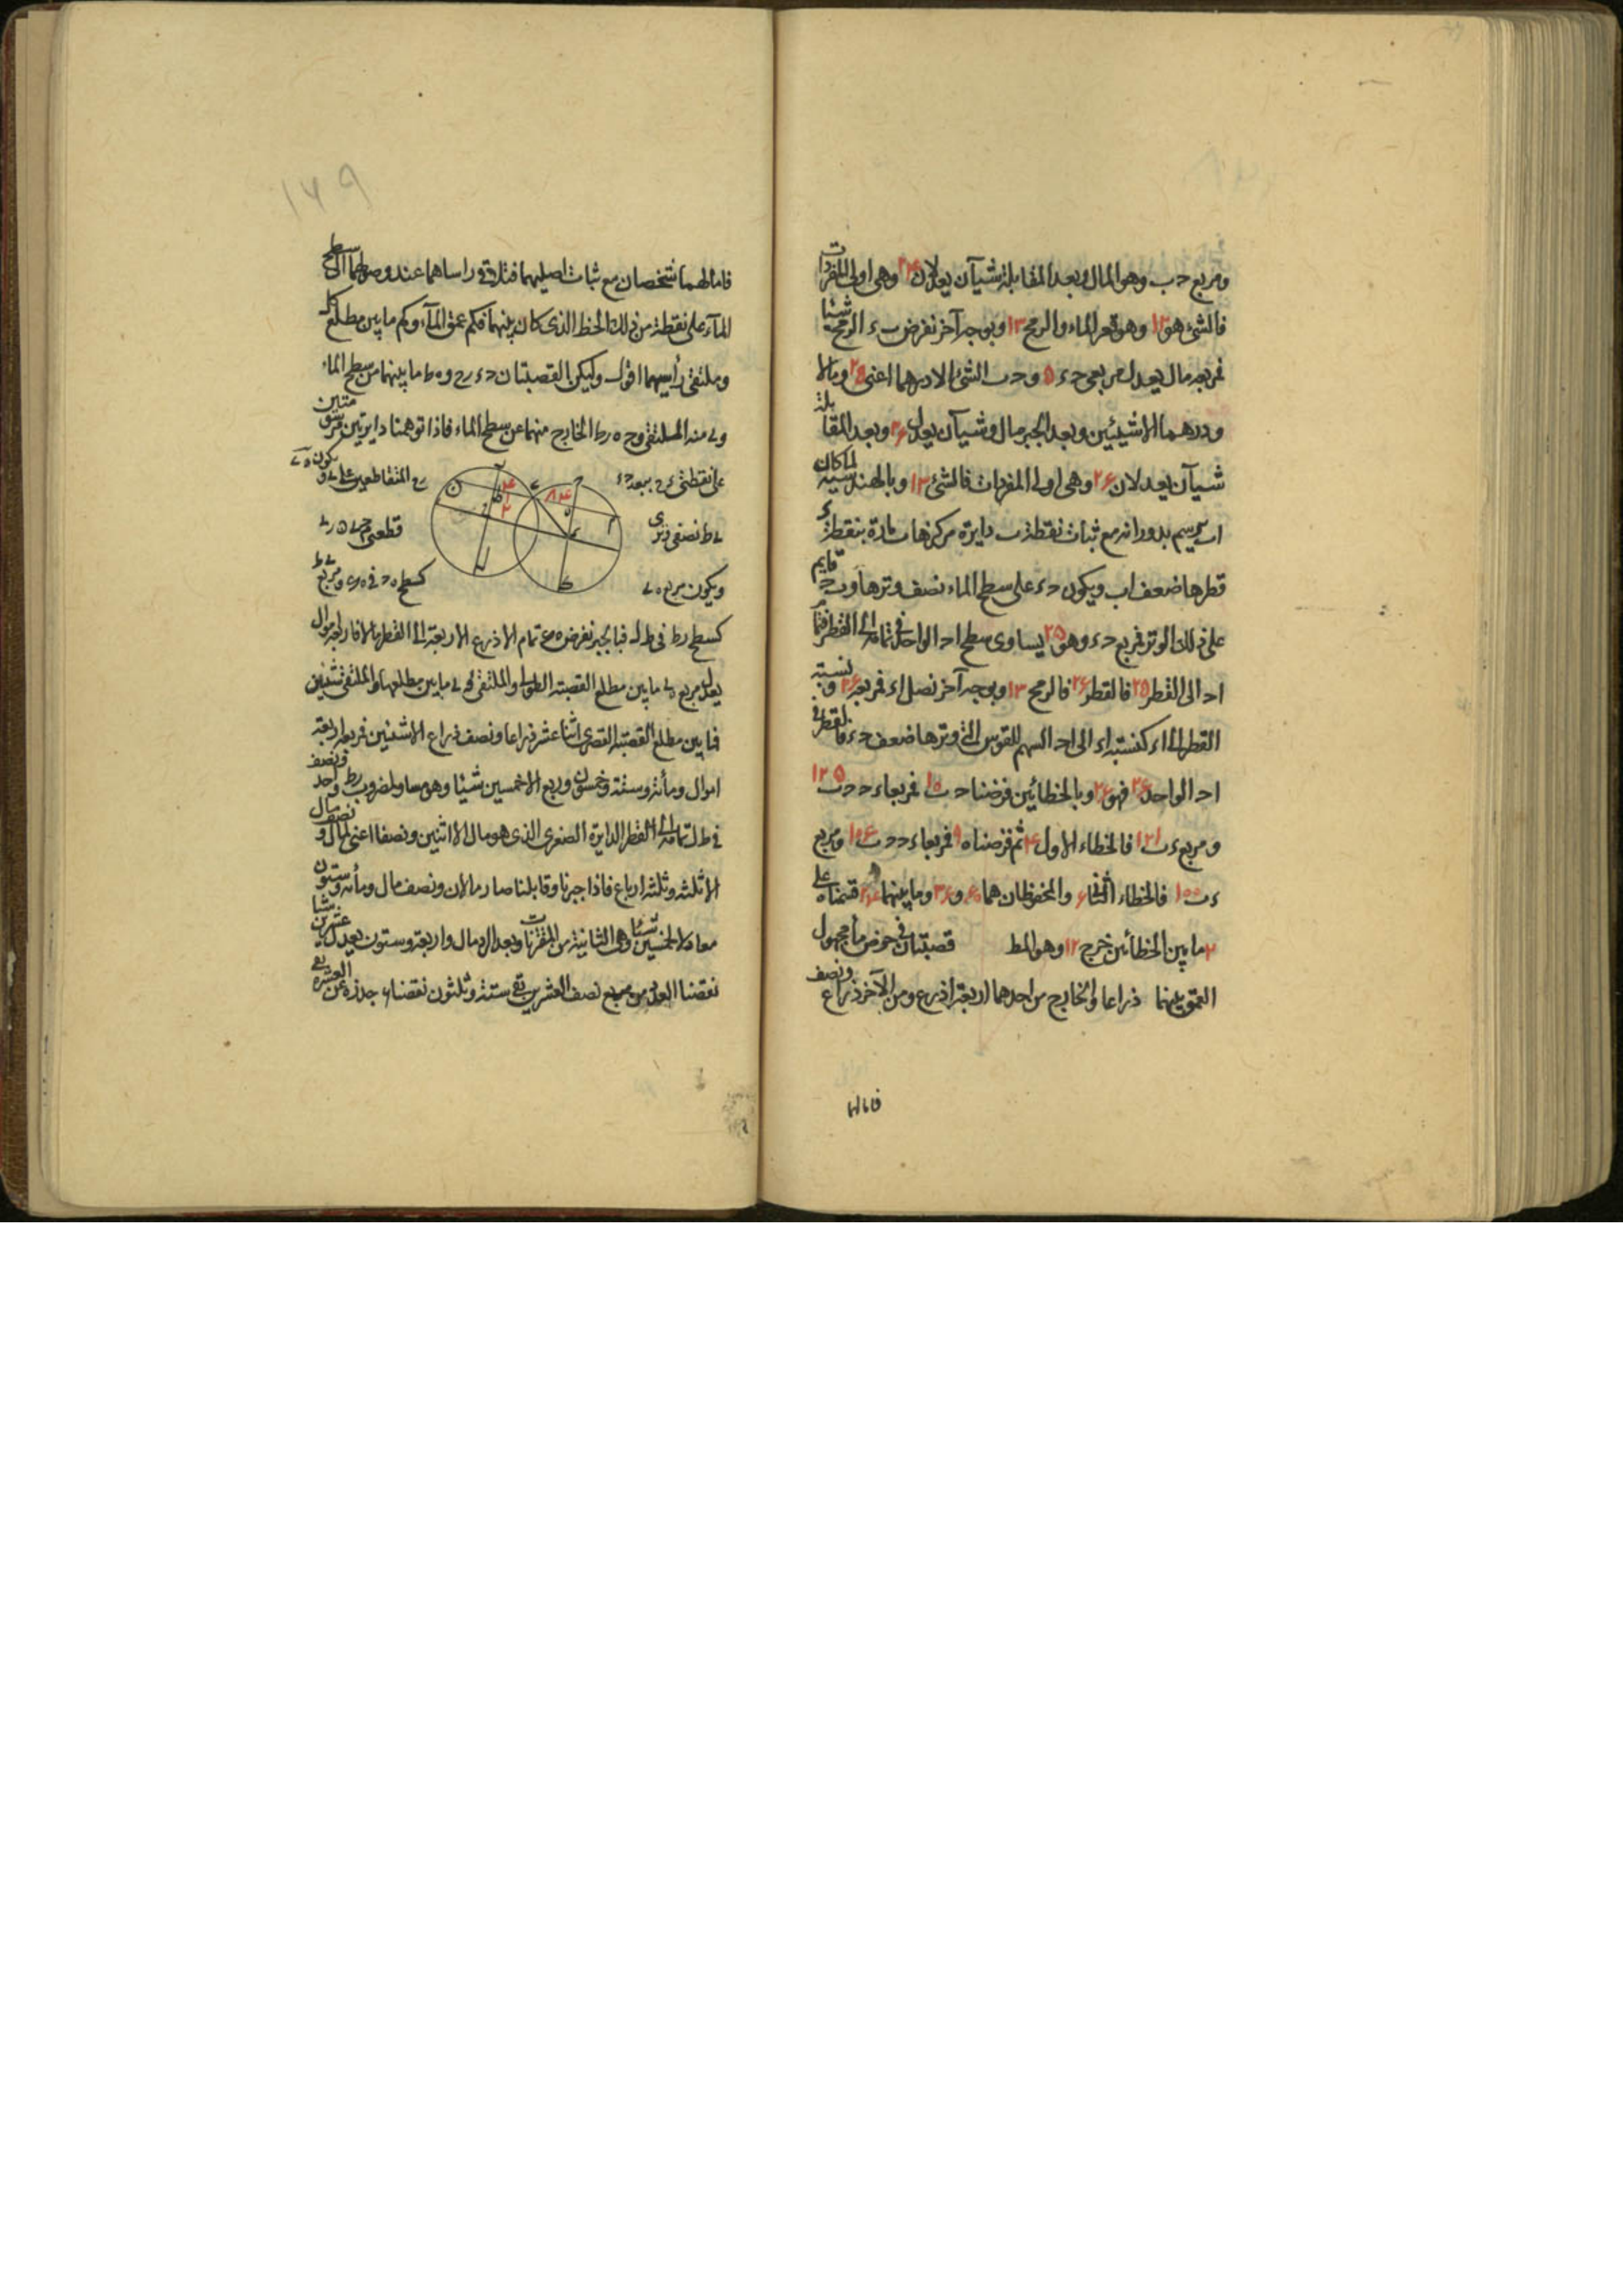 ومربع حب وهو المال وبعد المقابلة شيآن يعدلان ٢٤ وهى اولى المفردات
فالشئ هو ١٢ وهو قعر الماء والرمح ١٣ وبوجه آخر نفرض ب ء الرمح شيئا
فمربعه مال يعدل مربعى حء ٥ وحب الشئ الا درهما اعنى ٢٥ ومالا
ودرهما الا شيئين وبعد الجبر مال وشيآن يعدل ٢٦ وبعد المقابلة
شيآن يعدلان ٢٦ وهى اولى المفردات فالشئ ١٣ وبالهندسية لما كان
اب يرسم بدورانه مع ثبات نقطة ب دايرة مركزها ب مارة بنقطة ء
قطرها ضعف اب ويكون حء على سطح الماء نصف وترها وب ح قايم
على ذلك الوتر فمربع حء وهو ٢٥ يساوى سطح اح الواحد فى تمامه الى القطر فتمام
اح الى القطر ٢٥ فالقطر ٢٦ فالرمح ١٣ وبوجه آخر نصل اء فمربعه ٢٦ ونسبة
القطر الى اء كنسبة اء الى اح السهم للقوس التى وترها ضعف حء فالقطر فى
اح الواحد ٢٦ فهو ٢٦ وبالخطائين فرضنا حب ١٠ فمربعا ءح حب ١٢٥
ومربع ءب ١٢١ فالخطاء الاول ٤ ثم فرضناه ٩ فمربعا ءح حب ١٠٦ ومربع
ءب ١٠٠ فالخطاء الثانى ٦ والمحفوظان هما ٦٠ و ٣٦ وما بينهما ٢٤ قسمناه على
٢ ما بين الخطائين خرج ١٢ وهو المط قصبتان فى حوض ماء مجهول
العمق بينهما ذراعا والخارج من احدهما اربعة اذرع ومن الآخر ذراع ونصف
فامالهما
١٤٩
فامالهما شخصان مع ثبات اصليهما فتلاقى راساهما عند وصولهما الى سطح
المآء على نقطة من ذلك الخط الذى كان بينهما فكم عمق المآء وكم ما بين مطلع كل
وملتقى رأسيهما اقول وليكن القصبتان حء رح وه ط ما بينهما من سطح الماء
وى منه الملتقى وح ه رط الخارج منهما عن سطح الماء فاذا توهمنا دايرتين مرسومتين
على نقطتى ء ح ببعد حء رح المتقاطعين على ى ويكون ه ى
ى ط نصفى وترى قطعتى
ويكون مربع ه ى كسطح ه ح فى ه ك ومربع ى ط
كسطح رط فى ط ل فبالجبر نفرض ه ك تمام الاذرع الاربعة الى القطر مالا فاربعة اموال
يعدل مربع ه ى ما بين مطلع القصبة الطولى والملتقى فه ى ما بين مطلعها والملتقى شيئين
فما بين مطلع القصبة القصرى اثنا عشر ذراعا ونصف ذراع الا شيئين فمربعه اربعة
اموال ومأئة وستة وخمسون وربع الا خمسين شيئا وهو مساو لمضروب رط واحد ونصف
فى ط ل تمامه الى القطر الدايرة الصغرى الذى هو مال الا اثنين ونصفا اعنى لمال ونصف مال
الا ثلثه وثلثة ارباع فاذا جبرنا وقابلنا صار مالان ونصف مال ومأئه وستون
معادلا لخمسين شيئا وهى الثانية من المقترنات وبعد الرد مال واربعة وستون يعدل عشرين شيئا
نقصنا العدد من مربع نصف العشرين بقى ستة وثلثون نقصنا ٦ جذره عن العشره بقى